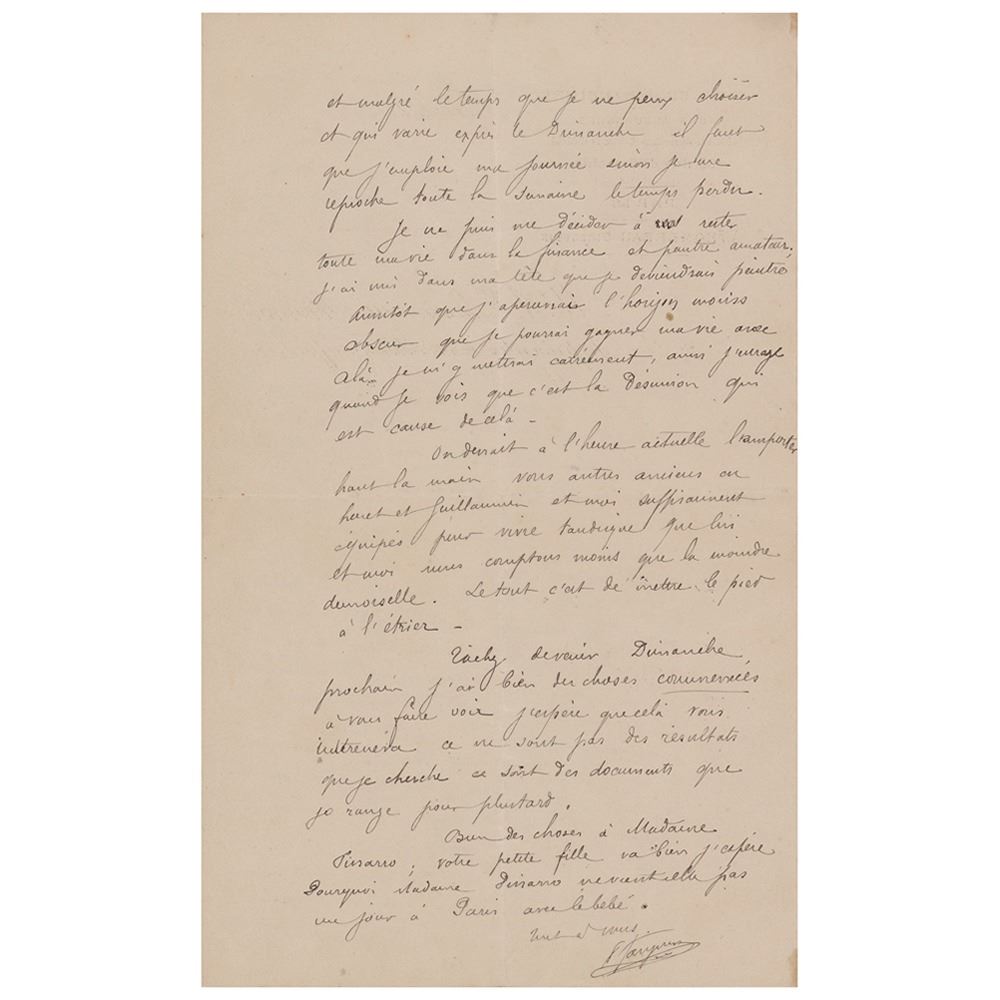 et malgré le temps que je ne peux choisir
et qui varie exprès le Dimanche il faut
que j'emploie ma journée sinon je me
reproche toute la semaine le temps perdu.
Je ne puis me décider à rester
toute ma vie dans la finance et peintre amateur,
j'ai mis dans ma tête que je deviendrais peintre
Aussitôt que j'apercevrai l'horizon moins
obscur que je pourrai gagner ma vie avec
celà je m'y mettrai carrément, aussi j'enrage
quand je vois que c'est la Désunion qui
est cause de celà -
On devrait à l'heure actuelle l'emporter
haut la main vous autres anciens en
et Guillaumin et moi suffisamment
équipés pour vivre tandisque que lui
et moi nous comptons moins que la moindre
demoiselle. Le tout c'est de mettre le pied
à l'étrier -
Tachez de venir Dimanche
prochain j'ai bien des choses commencées
à vous faire voir j'espère que celà vous
ce ne sont pas des résultats
que je cherche ce sont des documents que
je range pour plustard.
Bien des choses à Madame
Pissarro, votre petite fille va bien j'espère
Pourquoi Madame Pissarro ne vient elle pas
un jour à Paris avec le bébé.
tout à vous.
P Gauguin